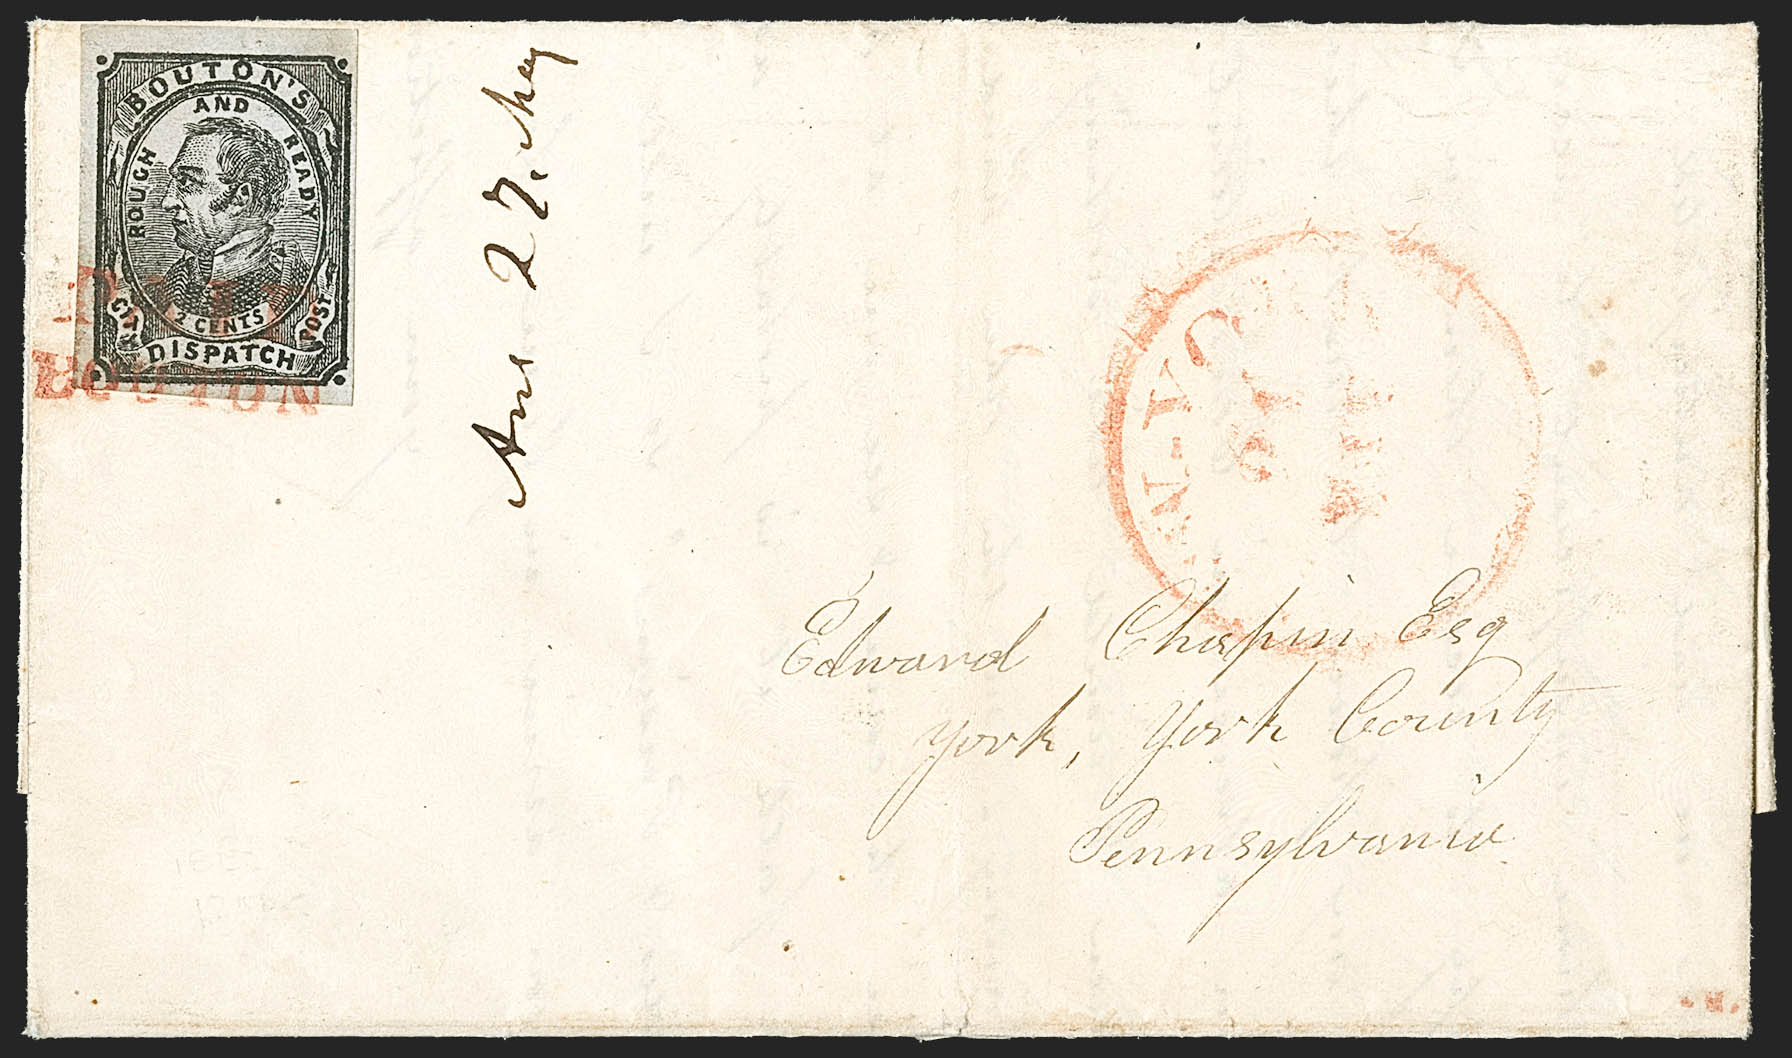 BOUTON'S
ROUGH AND READY
2 CENTS
CITY DISPATCH POST
BOUTON
Ans 27. May
Edward Chapin Esq
York, York County
Pennsylvania